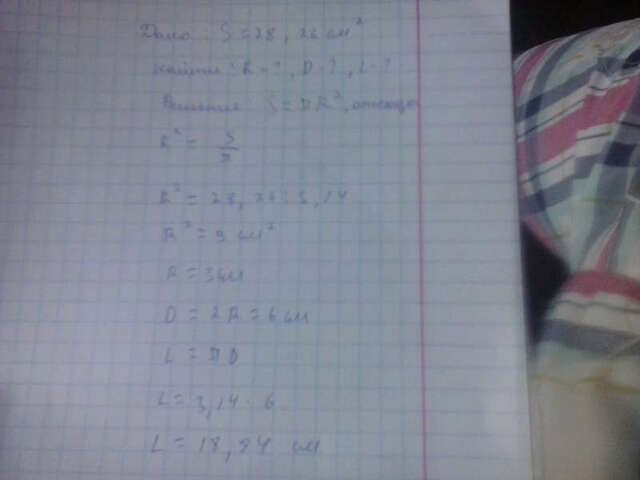 Дано: S = 28,26 см²
Найти: R - ?, D - ?, L - ?
Решение S = πR², отсюда
R² = S/π
R² = 28,26 : 3,14
R² = 9 см²
R = 3 см
D = 2R = 6 см
L = πD
L = 3,14 · 6
L = 18,84 см